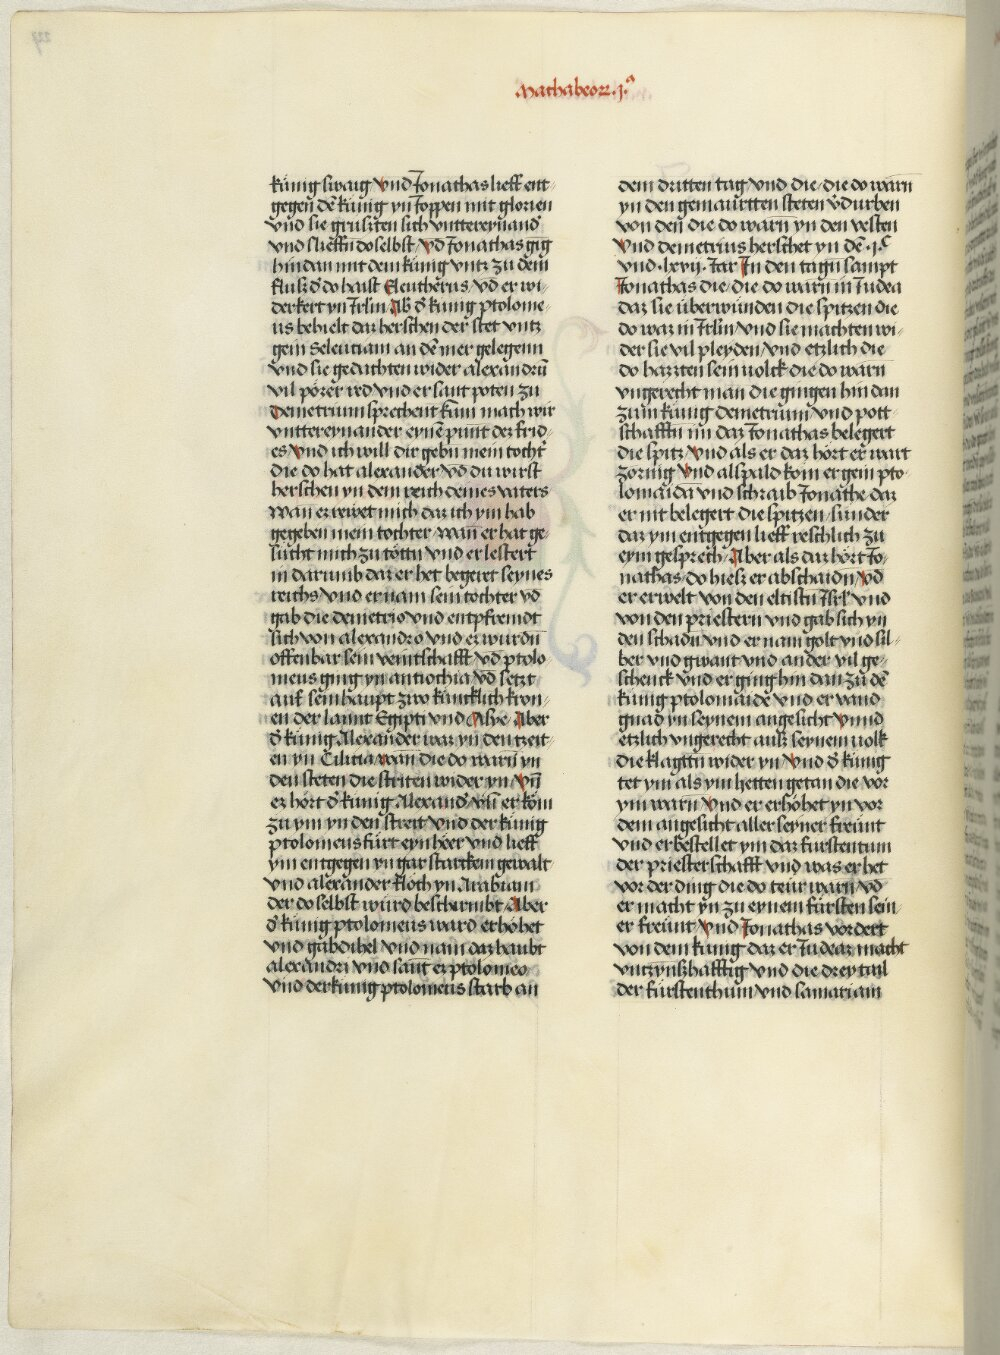 Mathabeoꝝ .j.ª
künig swaig Vnd Jonathas lieff ent-
gegen dē künig yn Joppen mit glorien
vnd sie grüsten sich vnttereynand̄
vnd slieffn̄ doselbst Vd̄ Jonathas gīg
hin dan mit dem künig vntz zu dem
flusz d̄ do haist Eleutherus vd̄ er wi-
derkert yn Jrl̄m Ab d̄ künig ptolome-
us behielt daz herschen der stet vntz
gein Seleutiam an dē mer gelegenn
vnd sie gedachten wider alexandrū
vil pözer red vnd er sant poten zu
Demetrium sprechent kum mach wir
vnttereynander eynē punt dez frid-
es Vnd ich will dir gebn̄ mein tocht̄
die do hat alexander vd̄ du wirst
herschen yn dem reich deines vaters
Wan er rewet mich daz ich ym hab
gegeben mein tochter wan̄ er hat ge-
sucht mich zu tottn̄ vnd er lestert
in darumb daz er het begeret seynes
reichs vnd er nam sein tochter vd̄
gab die demetrio vnd entpfremdt
sich von alexandro vnd ez wurdn̄
offenbar sein veintschafft vd̄ ptolo-
meus ging yn antiochia vd̄ setzt
auf sein haupt zwo künklich kron-
en der lannt Egipti vnd Asye Aber
d̄ künig Alexander waz yn den tzeit-
en yn Cilitia wan die do warn̄ yn
den steten die striten wider yn Vn̄
ez hört d̄ künig Alexand̄ vn̄ er kom
zu ym yn den streit vnd der künig
ptolomeus fürt eyn heer vnd lieff
ym entgegen yn gar starckem gewalt
vnd alexander floch yn Arabiam
der do selbst würd beschirmbt Aber
d̄ künig ptolomeus ward erhöhet
vnd gabdihel vnd nam daz haubt
alexandri vnd sant ez ptolomeo
vnd der künig ptolomeus starb an
dem dritten tag vnd die die do warn̄
yn den gemaurtten steten v̄durben
von den̄ die do warn̄ yn den vesten
Vnd demetrius herschet yn dē .j.c
vnd .lxvij. Jar Jn den tagn̄ sampt
Jonathas die die do warn̄ in Judea
daz sie überwunden die spitzen die
do waz in Jrl̄m vnd sie machten wi-
der sie vil pleyden vnd etzlich die
do hazzten sein volck die do warn̄
vngerecht man die gingen hin dan
zum künig demetrium vnd pott-
schafftn̄ im daz Jonathas belegert
die spitz Vnd als er daz hört er wart
zornig Vnd als pald kom er gein pto-
lomaida vnd schraib Jonathe daz
er nit belegert die spitzen sunder
daz ym entgegen lieff reschlich zu
eym gesprech Aber als daz hört Jo-
nathas do hiesz er abschaidn̄ Vd̄
er erwelt von den eltistn̄ Jsrl̄ vnd
von den priestern vnd gab sich yn
den schadn̄ vnd er nam golt vnd sil-
ber vnd gwant vnd ander vil ge-
schenck vnd er ging hin dan zu dē
künig ptolomaide vnd er vand
gnad yn seynem angesicht Vnnd
etzlich vngerecht auß seynem volk
die klagttn̄ wider yn Vnd d̄ künig
tet ym als ym hetten getan die vor
ym warn̄ Vnd er erhöhet yn vor
dem angesicht aller seyner freunt
vnd er bestellet ym daz furstentum
der priesterschafft vnd was er het
vor der ding die do teur warn̄ vd̄
er macht yn zu eynem fürsten sein-
er freunt Vnd Jonathas vordert
von dem künig daz er Judeaz macht
vntzynßhafftig vnd die drey tail
der fürstenthum vnd samariam